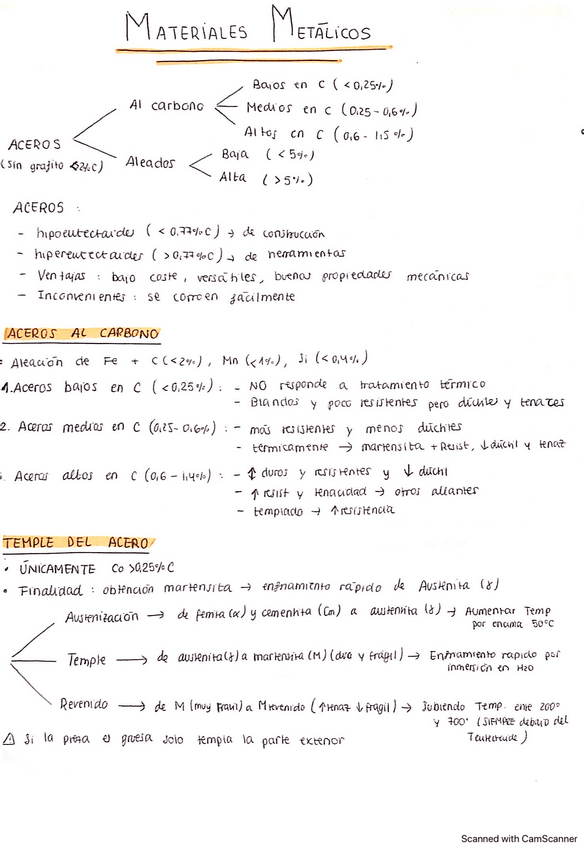 MATERIALES METÁLICOS
Bajos en C (<0,25%)
Al carbono
Medios en C (0,25-0,6%)
Altos en C (0,6 - 1,5 %)
ACEROS
(Sin grafito <2%C)
Aleados
Baja (<5%)
Alta (>5%)
ACEROS :
- hipoeutectoides (<0,77%C) → de construcción
- hipereutectoides (>0,77%C) → de herramientas
- Ventajas : bajo coste, versátiles, buenas propiedades mecánicas
- Inconvenientes : se corroen fácilmente
ACEROS AL CARBONO
Aleación de Fe + C (<2%), Mn (<1%), Si (<0,4%)
1. Aceros bajos en C (<0,25%) : - NO responde a tratamiento térmico
- Blandos y poco resistentes pero dúctiles y tenaces
2. Aceros medios en C (0,25- 0,6%) : - más resistentes y menos dúctiles
- térmicamente → martensita + Resist, ↓ dúctil y tenaz
Aceros altos en C (0,6 - 1,4%) : - ↑ duros y resistentes y ↓ dúctil
- ↑ resist y tenacidad → otros aleantes
- templado → ↑ resistencia
TEMPLE DEL ACERO
• ÚNICAMENTE Co >0,25% C
• Finalidad : obtención martensita → enfriamiento rápido de Austenita (γ)
Austenización → de ferrita (α) y cementita (Cm) a austenita (γ) → Aumentar Temp
por encima 50°C
Temple → de austenita (γ) a martensita (M) (dura y frágil) → Enfriamiento rápido por
inmersión en H2O
Revenido → de M (muy frágil) a M revenido (↑ tenaz ↓ frágil) → Subiendo Temp. entre 200°
y 700° (SIEMPRE debajo del
Teutectoide)
⚠ Si la pieza es gruesa solo templa la parte exterior
Scanned with CamScanner